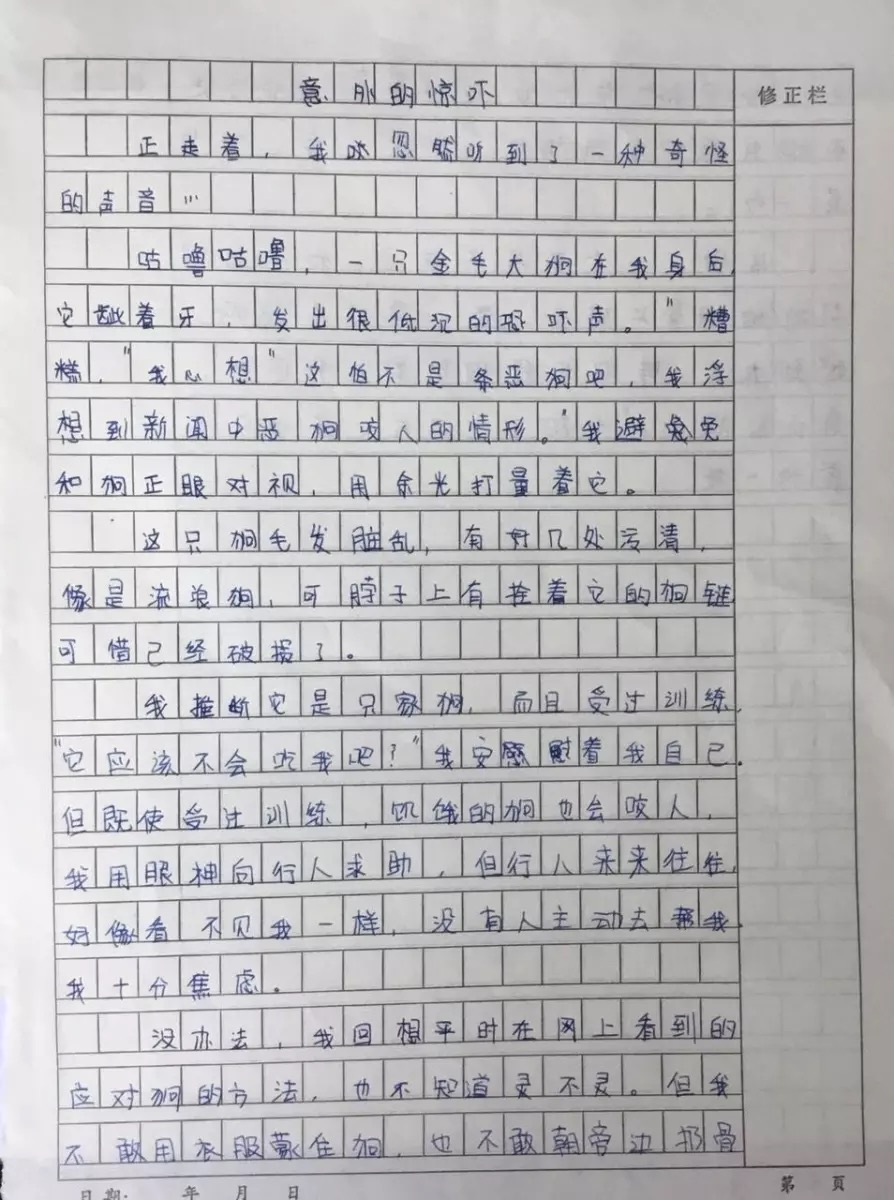 意外的惊吓
修正栏
正走着，我忽然听到了一种奇怪
的声音…
咕噜咕噜，一只金毛大狗在我身后，
它龇着牙，发出很低沉的恐吓声。“糟
糕，”我心想“这怕不是条恶狗吧，我浮
想到新闻中恶狗咬人的情形。”我避免
和狗正眼对视，用余光打量着它。
这只狗毛发脏乱，有好几处污清，
像是流浪狗，可脖子上有拴着它的狗链，
可惜已经破损了。
我推断它是只家狗，而且受过训练，
“它应该不会吃我吧？”我安慰着我自己。
但既使受过训练，饥饿的狗也会咬人，
我用眼神向行人求助，但行人来来往往，
好像看不见我一样，没有人主动去帮我。
我十分焦虑。
没办法，我回想平时在网上看到的
应对狗的方法，也不知道灵不灵。但我
不敢用衣服蒙住狗，也不敢朝旁边扔骨
日期： 年 月 日
第 页